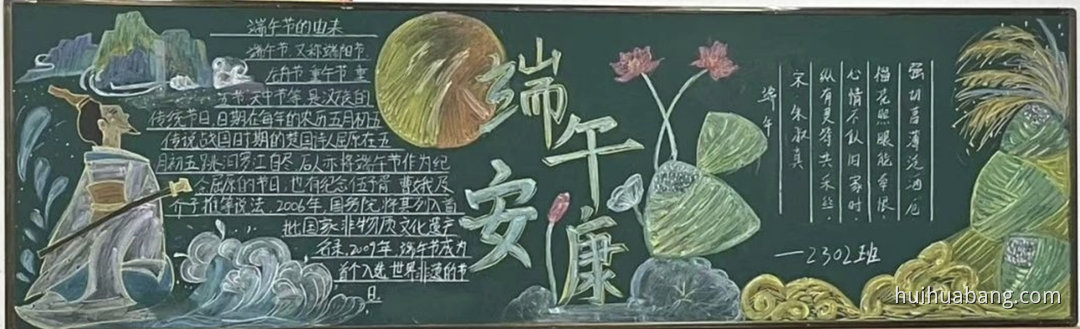 端午节的由来
端午节,又称端阳节、
五月节、重午节、重
五节、天中节等,是汉族的
传统节日,日期在每年的农历五月初五
传说战国时期的楚国诗人屈原在五
月初五跳汨罗江自尽,后人亦将端午节作为纪
念屈原的节日;也有纪念伍子胥、曹娥及
介子推等说法。2006年,国务院将其列入首
批国家非物质文化遗产
名录,2009年,端午节成为
首个入选世界非遗的节
日
端午安康
端午
宋 朱淑真
纵有灵符共采丝,
心情不似旧家时。
榴花照眼能牵恨,
强切菖蒲泛酒卮
—2302班
huihuabang.com